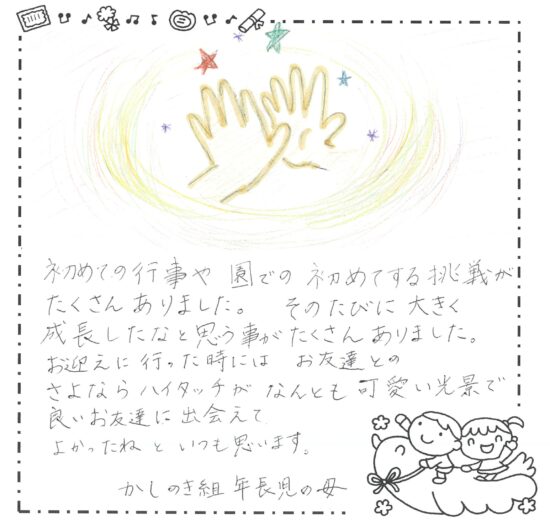 初めての行事や 園での 初めてする挑戦が
たくさん ありました。 そのたびに 大きく
成長したなと思う事がたくさん ありました。
お迎えに 行った時には お友達との
さよならハイタッチが なんとも 可愛い光景で
良いお友達に 出会えて
よかったね と いつも思います。
かしのき組 年長児の母